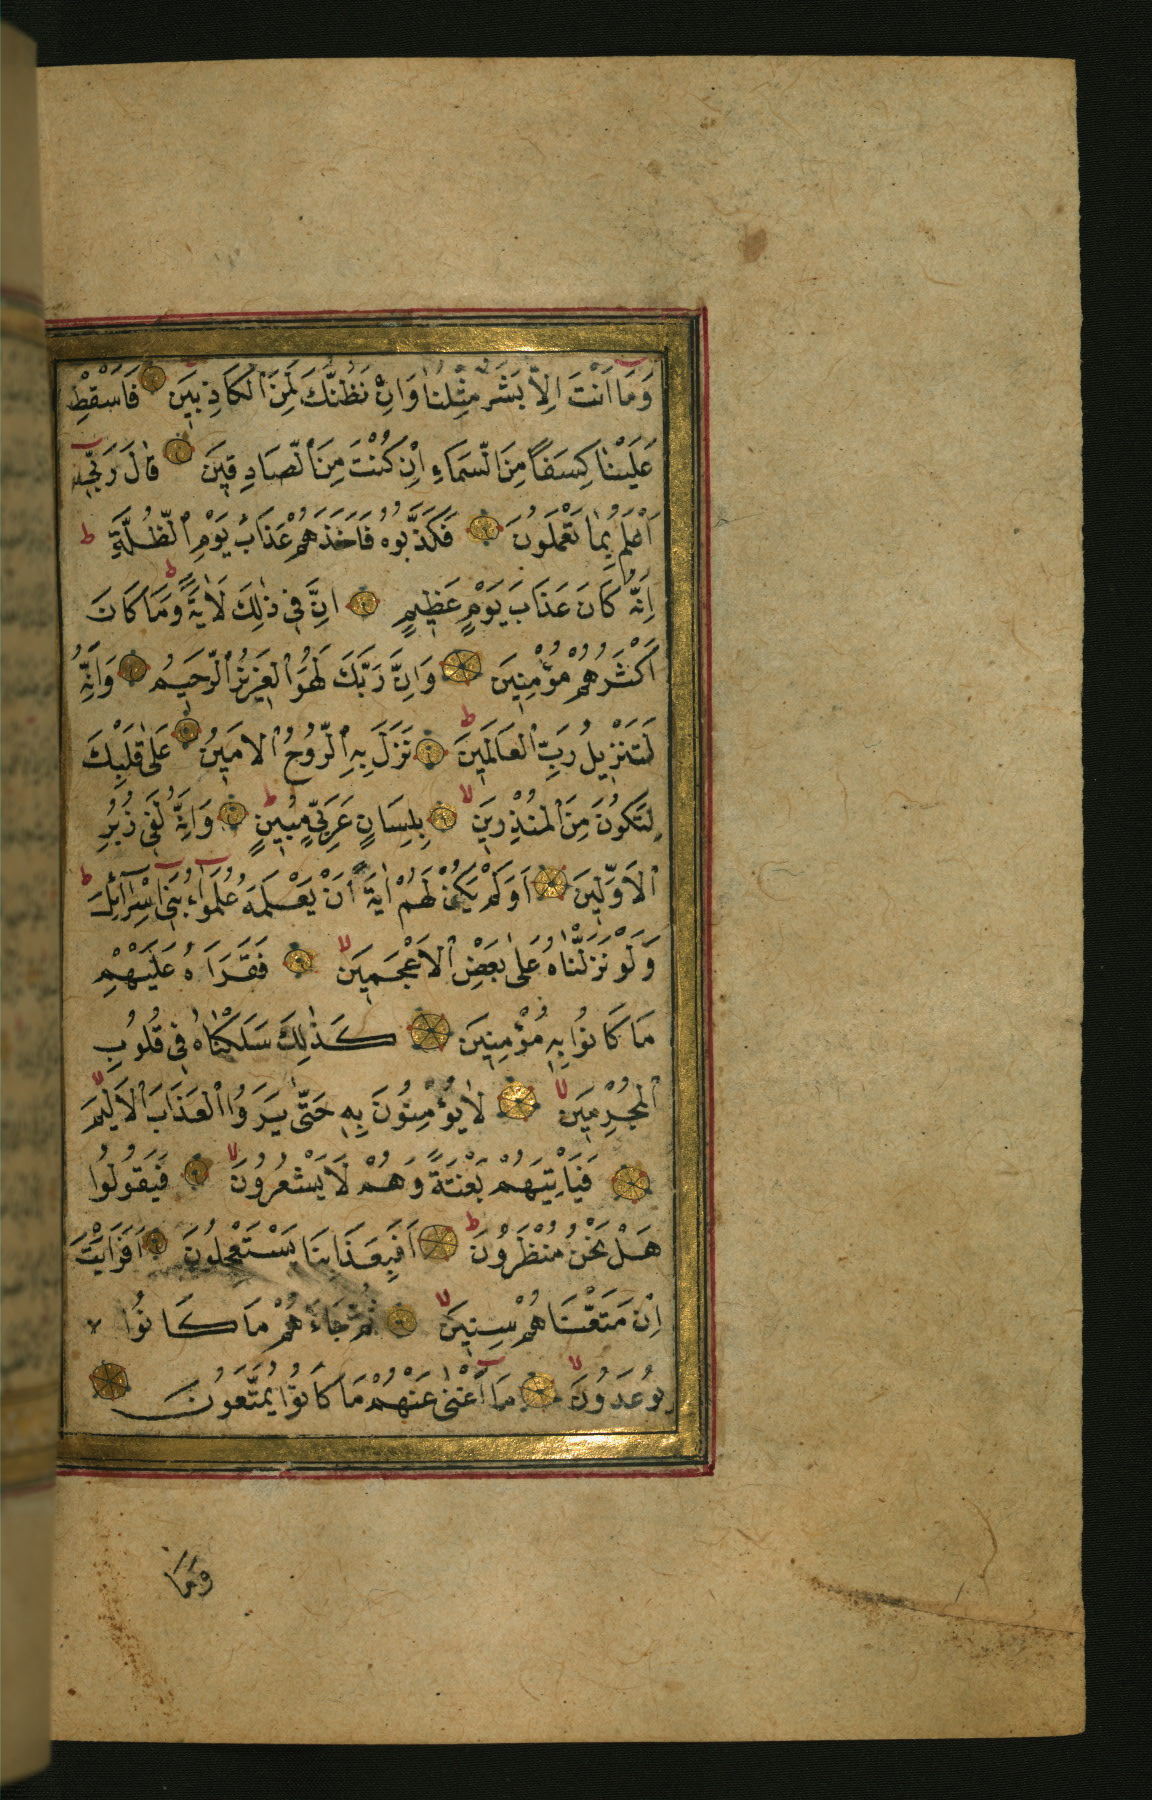 وَمَا اَنْتَ اِلَّا بَشَرٌ مِثْلُنَا وَاِنْ نَظُنُّكَ لَمِنَ الْكَاذِبِينَ فَاَسْقِطْ
عَلَيْنَا كِسَفًا مِنَ السَّمَاءِ اِنْ كُنْتَ مِنَ الصَّادِقِينَ قَالَ رَبِّي
اَعْلَمُ بِمَا تَعْمَلُونَ فَكَذَّبُوهُ فَاَخَذَهُمْ عَذَابُ يَوْمِ الظُّلَّةِ ط
اِنَّهُ كَانَ عَذَابَ يَوْمٍ عَظِيمٍ اِنَّ فِي ذٰلِكَ لَاٰيَةً ط وَمَا كَانَ
اَكْثَرُهُمْ مُؤْمِنِينَ وَاِنَّ رَبَّكَ لَهُوَ الْعَزِيزُ الرَّحِيمُ وَاِنَّهُ
لَتَنْزِيلُ رَبِّ الْعَالَمِينَ ط نَزَلَ بِهِ الرُّوحُ الْاَمِينُ عَلٰى قَلْبِكَ
لِتَكُونَ مِنَ الْمُنْذِرِينَ لا بِلِسَانٍ عَرَبِيٍّ مُبِينٍ ط وَاِنَّهُ لَفِي زُبُرِ
الْاَوَّلِينَ اَوَلَمْ يَكُنْ لَهُمْ اٰيَةً اَنْ يَعْلَمَهُ عُلَمٰٓؤُا بَنِي اِسْرَائِلَ ط
وَلَوْ نَزَّلْنَاهُ عَلٰى بَعْضِ الْاَعْجَمِينَ لا فَقَرَاَهُ عَلَيْهِمْ
مَا كَانُوا بِهِ مُؤْمِنِينَ كَذٰلِكَ سَلَكْنَاهُ فِي قُلُوبِ
الْمُجْرِمِينَ لا لَا يُؤْمِنُونَ بِهِ حَتّٰى يَرَوُا الْعَذَابَ الْاَلِيمَ لا
فَيَاْتِيَهُمْ بَغْتَةً وَهُمْ لَا يَشْعُرُونَ لا فَيَقُولُوا
هَلْ نَحْنُ مُنْظَرُونَ ط اَفَبِعَذَابِنَا يَسْتَعْجِلُونَ اَفَرَاَيْتَ
اِنْ مَتَّعْنَاهُمْ سِنِينَ لا ثُمَّ جَاءَهُمْ مَا كَانُوا
يُوعَدُونَ لا مَا اَغْنٰى عَنْهُمْ مَا كَانُوا يُمَتَّعُونَ
وَمَا